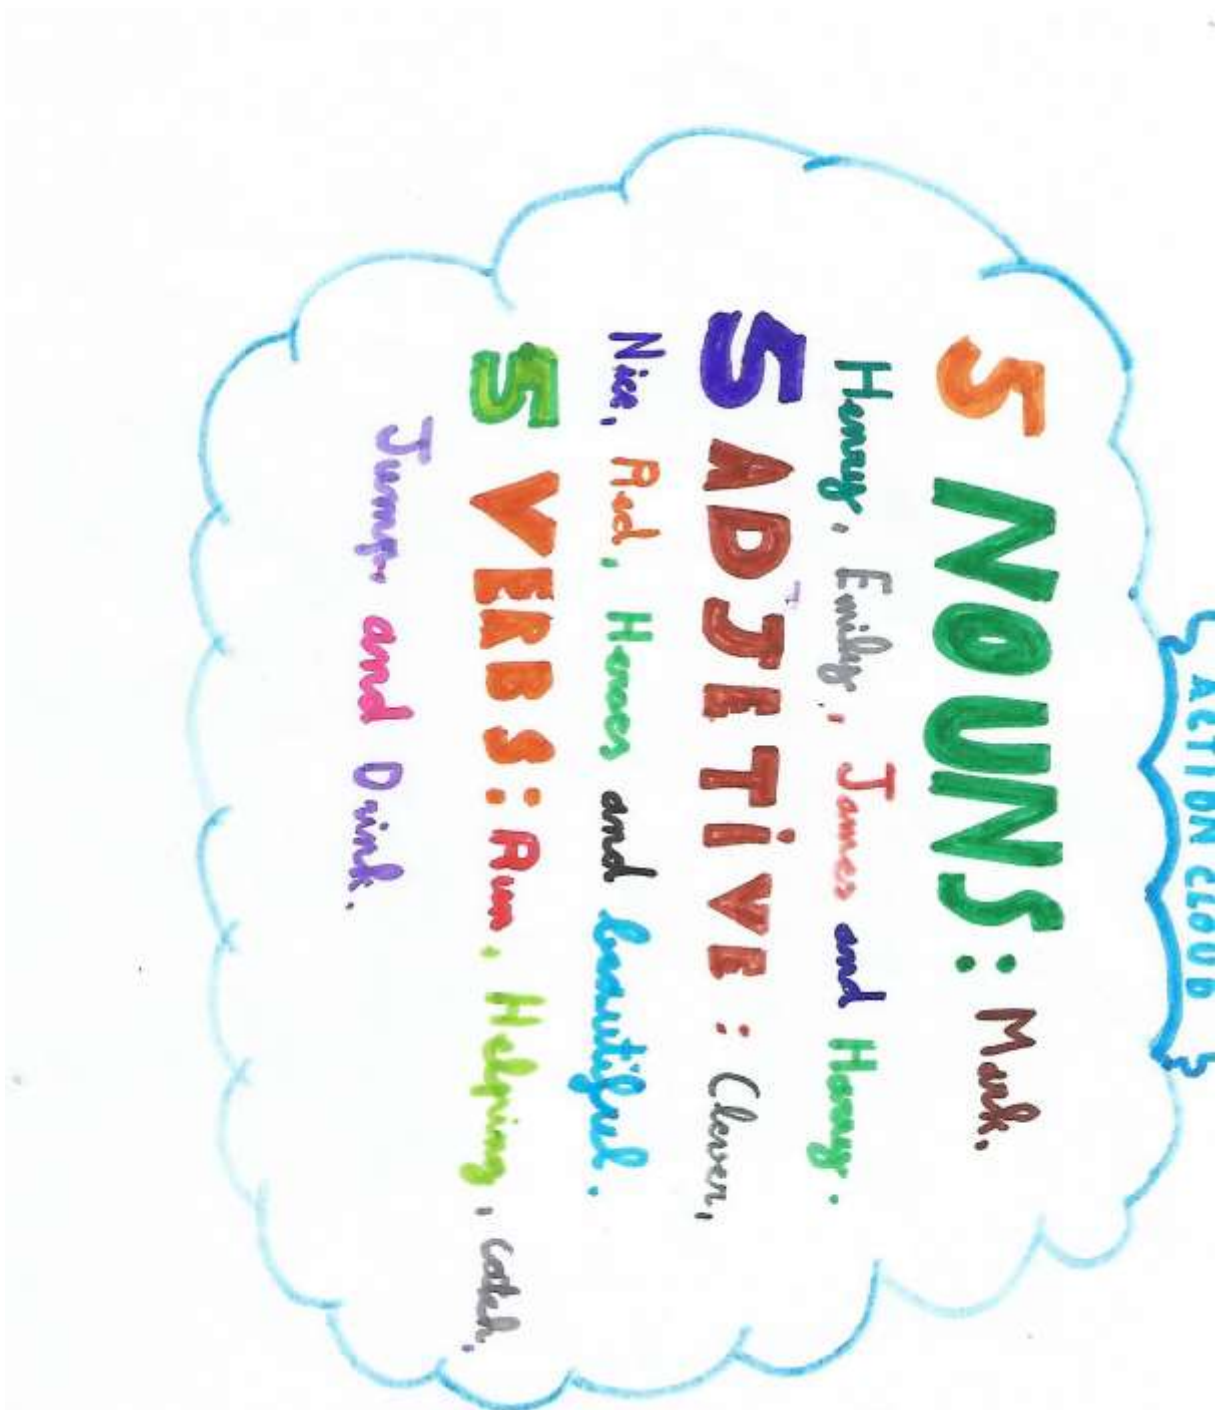 { ACTION CLOUD }
5 NOUNS: Mark,
Henry, Emily, James and Harry.
5 ADJETiVE: Clever,
Nice, Red, Heroes and beautiful.
5 VERBS: Run, Helping, catch,
Jump and Drink.